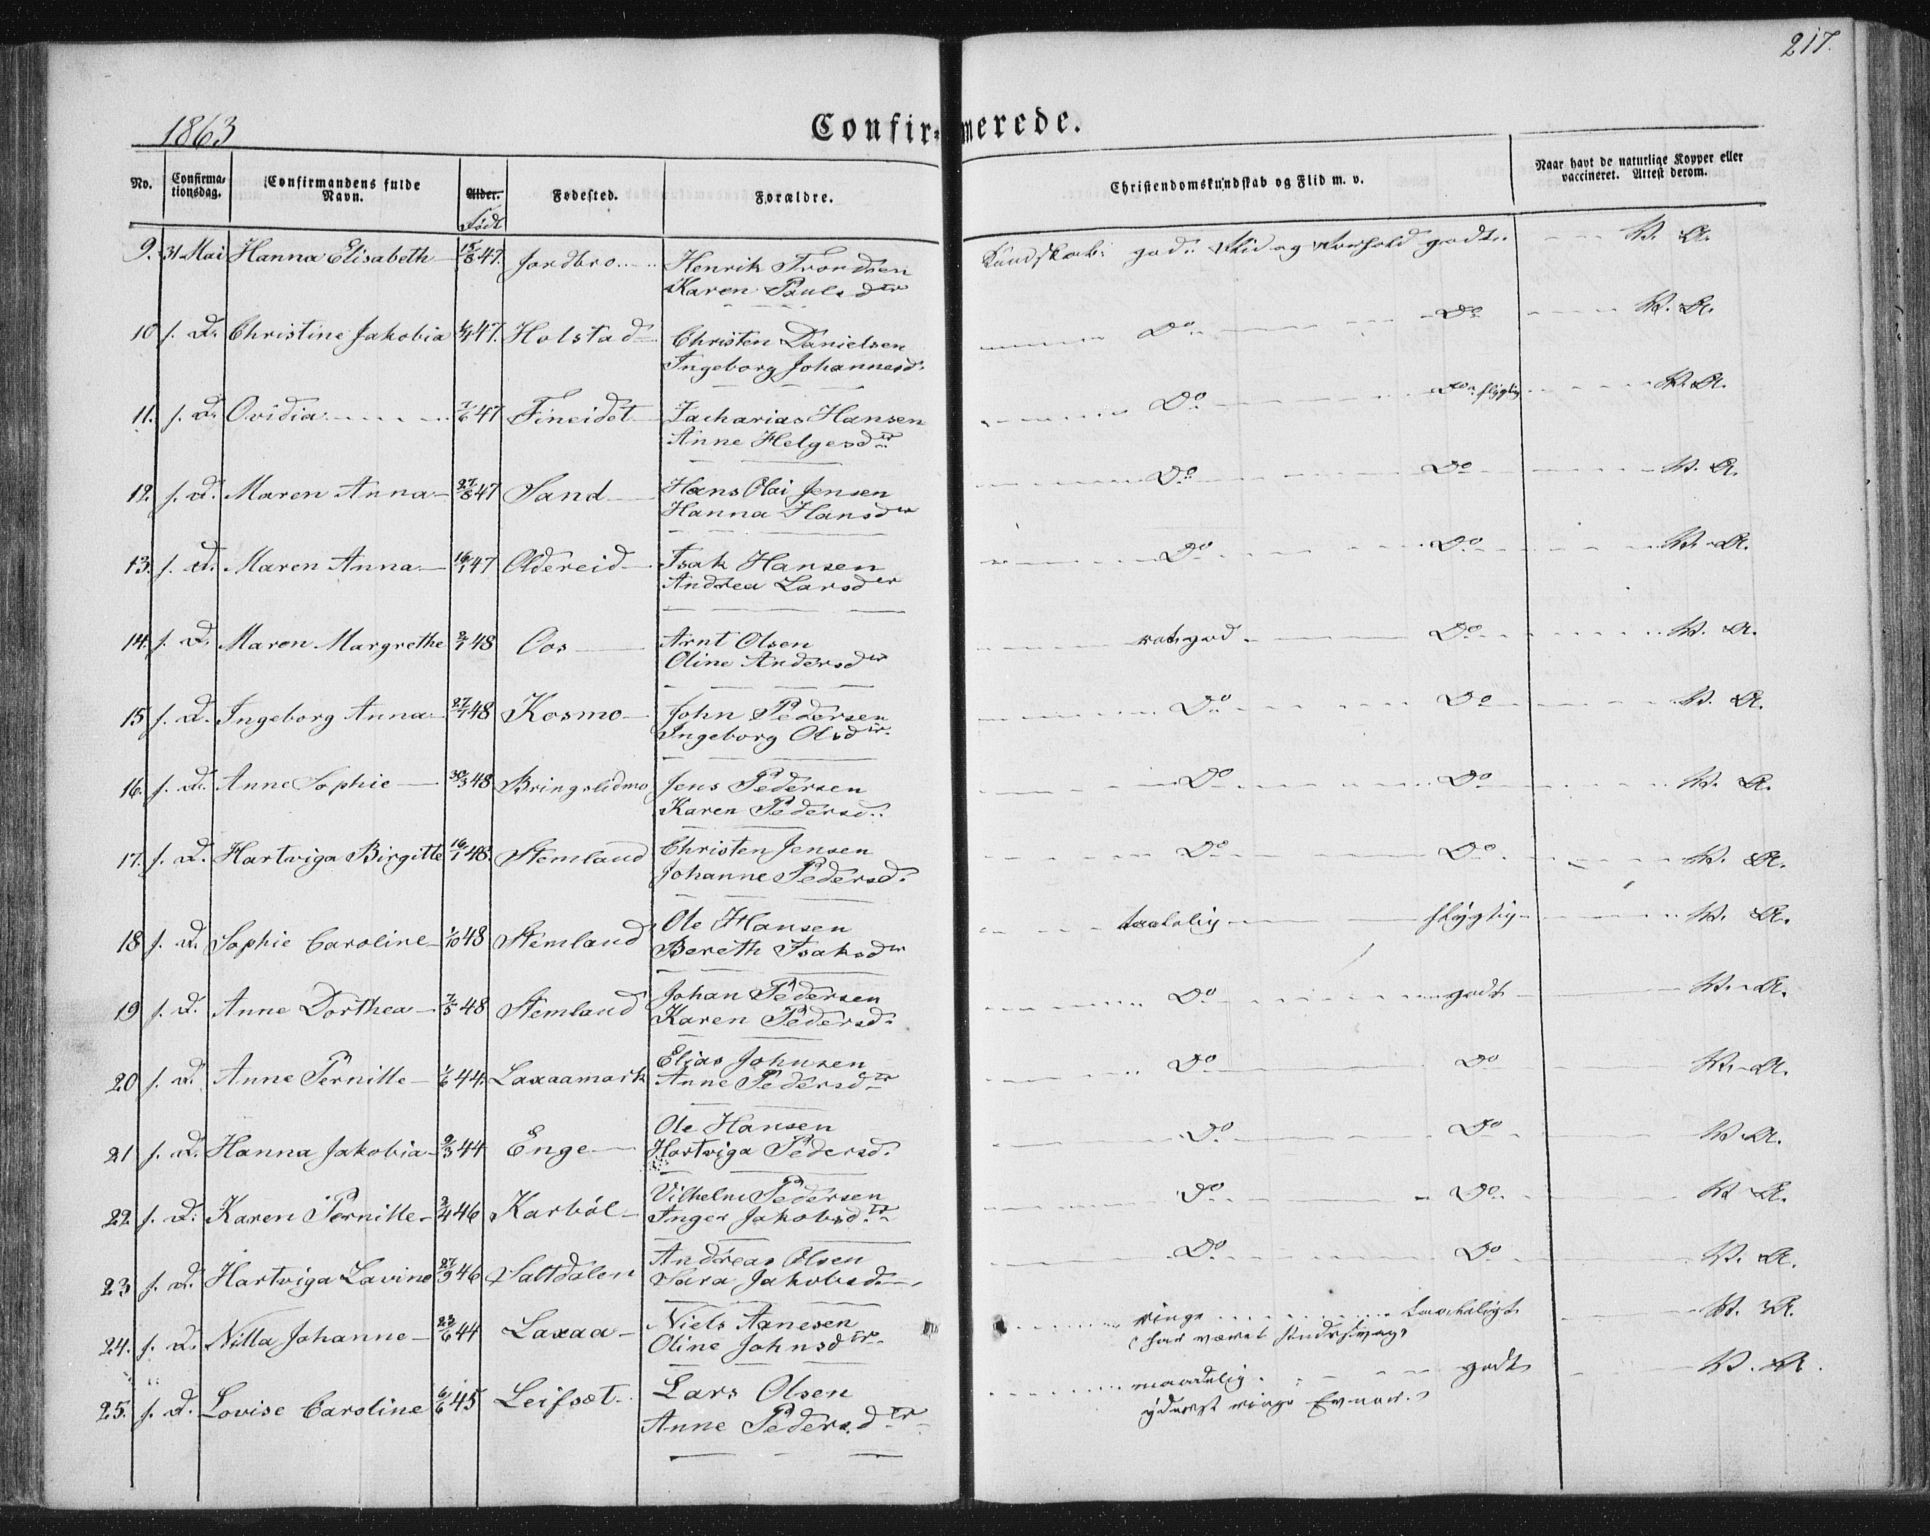 217.
1863
Confirmerede.
No. Confirmationsdag. Confirmandens fulde Navn. Alder. Født Fødested. Forældre. Christendomskundskab og Flid m. v. Naar havt de naturlige Kopper eller vaccineret. Attest derom.
9. 31 Mai Hanna Elisabeth 47. Jordbro Henrik Trondsen Kundskab: god: Flid og Forhold godt. V. A.
Karen Paulsdtr
10 s. D. Christine Jakobia 47. Holstad Christen Danielsen Do Do V. A.
Ingeborg Johannesd.
11. s. D. Ovidia 47 Fineidet Zacharias Hansen Do Do flygtig V. A.
Anne Helgesdtr
12. s. D. Maren Anna 27/8 47 Sand Hans Olai Jensen Do Do V. A.
Hanna Hansdtr
13. s. D. Maren Anna 16/1 47 Oldereid Isak Hansen Do Do V. A.
Andrea Larsdtr
14. s. D. Maren Margrethe 48 Oos Arnt Olsen god Do V. A.
Oline Andersdtr
15 s. D. Ingeborg Anna 27/1 48 Kosmo John Pedersen Do Do V. A.
Ingeborg Olsdtr.
16. s. D. Anne Sophie 30/3 48 Bringslidmo Jens Pedersen Do Do V. A.
Karen Pedersd.
17. s. D. Hartviga Birgitte 16/1 48. Stemland Christen Jensen Do Do V. A.
Johanne Pedersd.
18 s. D. Sophie Caroline 1/10 48 Stemland Ole Hansen taalelig flygtig V. A.
Bereth Isaksdtr
19 s. D. Anne Dorthea 7/5 48 Stemland Johan Pedersen Do godt V. A.
Karen Pedersd.
20 s. D. Anne Pernille 1/6 44. Laxaamark Elias Johnsen Do Do V. A.
Anne Pedersdtr
21 s. D. Hanna Jakobia 9/3 44 Enge Ole Hansen Do Do V. A.
Hartviga Pedersd.
22. s. D. Karen Pernille 3/4 46 Karbøl Vilhelm Pedersen Do Do V. A.
Inger Jakobsdtr
23 s. D. Hartviga Lavine 27/9 46 Saltdalen Andreas Olsen Do Do V. A.
Sara Jakobsd.
24. s. D. Nilla Johanne 23/6 44 Laxaa Niels Aanesen ringe taaleligt V. A.
Oline Johnsdtr. (har været sindssvag)
25. s. D. Lovise Caroline 6/6 45 Leifsæt Lars Olsen maadelig godt V. A.
Anne Pedersdtr yderst ringe Evner.)